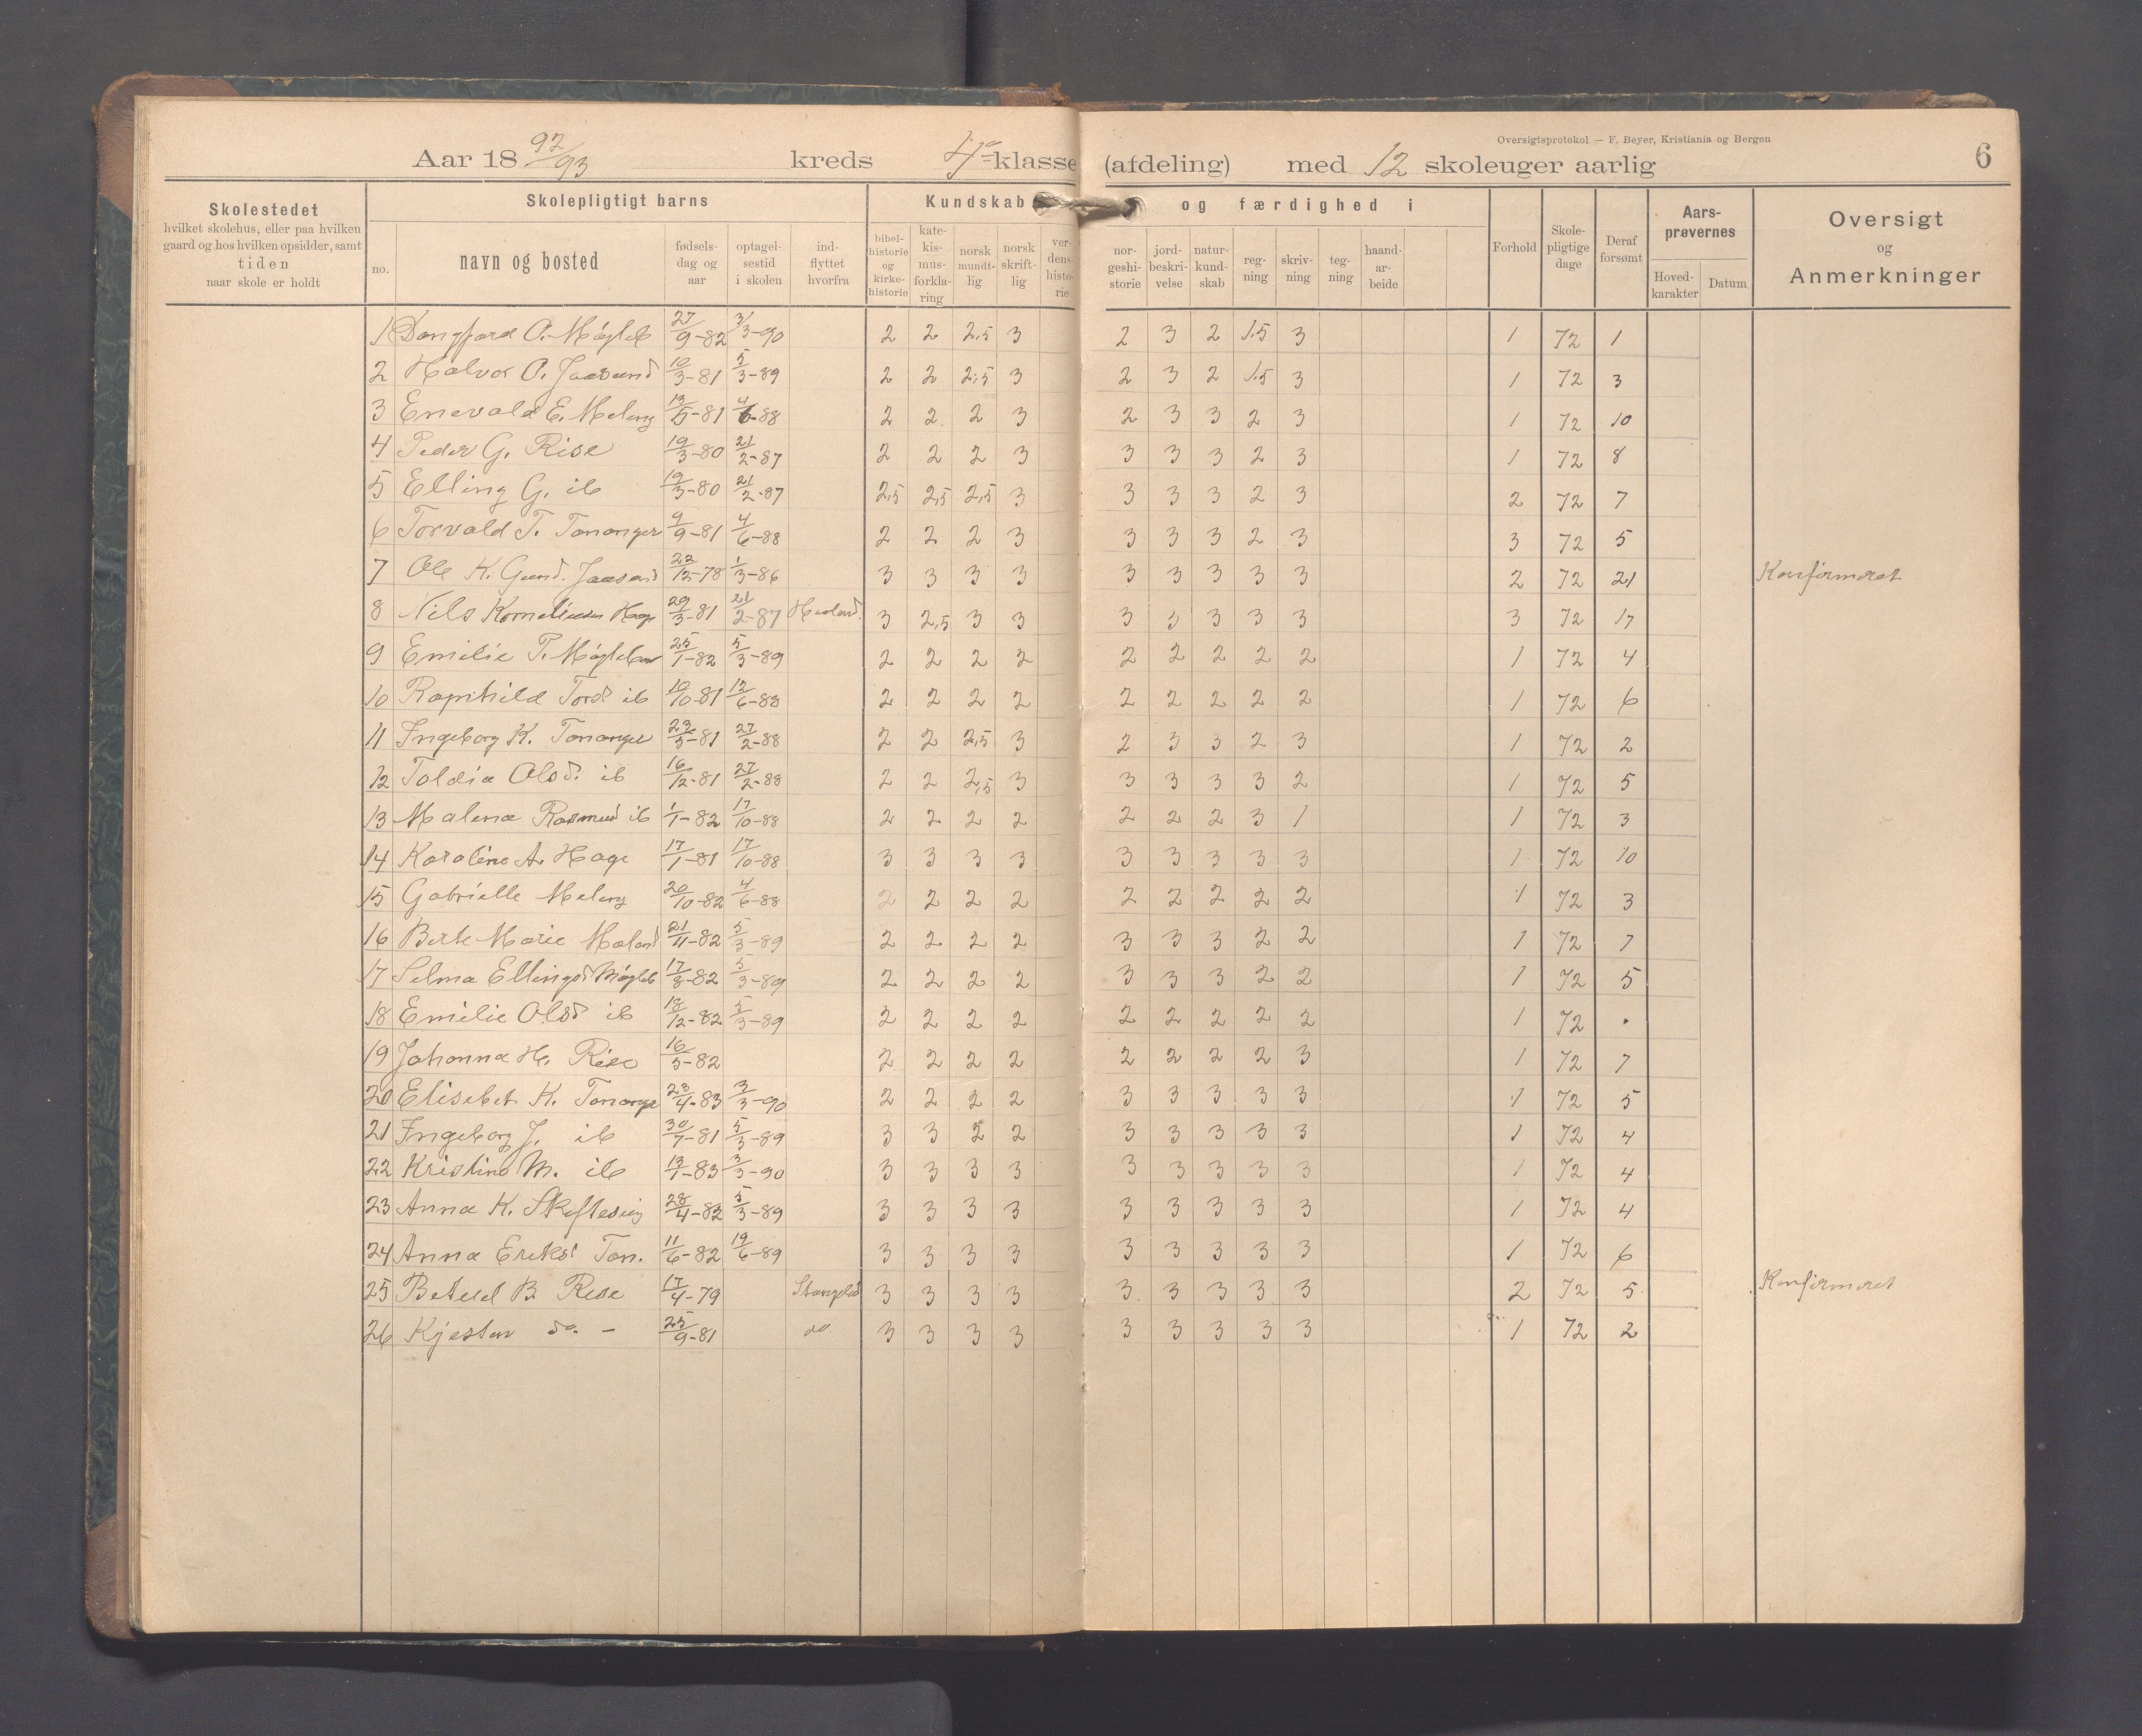 Oversigtsprotokol — F. Beyer, Kristiania og Bergen
Aar 18 92/93 kreds 4de klasse (afdeling) med 12 skoleuger aarlig 6
Skolestedet
hvilket skolehus, eller paa hvilken
gaard og hos hvilken opsidder, samt
tiden
naar skole er holdt
Skolepligtigt barns
no. navn og bosted
fødsels-
dag og
aar
optagel-
sestid
i skolen
ind-
flyttet
hvorfra
Kundskab og færdighed i
bibel-
historie
og
kirke-
historie
kate-
kis-
mus-
forkla-
ring
norsk
mundt-
lig
norsk
skrift-
lig
ver-
dens-
histo-
rie
nor-
geshi-
storie
jord-
beskri-
velse
natur-
kund-
skab
reg-
ning
skriv-
ning
teg-
ning
haand-
ar-
beide
Forhold
Skole-
pligtige
dage
Deraf
forsømt
Aars-
prøvernes
Hoved-
karakter
Datum
Oversigt
og
Anmerkninger
1 O. Møgleb 27/9-82 3/3-90 2 2 2,5 3 2 3 2 1.5 3 1 72 1
2 Halvor O. Jaasund 10/3-81 5/3-89 2 2 2,5 3 2 3 2 1.5 3 1 72 3
3 Enevald E. Meling 13/5-81 4/6-88 2 2 2 3 2 3 3 2 3 1 72 10
4 Peder G. Rise 19/3-80 21/2-87 2 2 2 3 3 3 3 2 3 1 72 8
5 Elling G. ib 19/3-80 21/2-87 2,5 2,5 2,5 3 3 3 3 2 3 2 72 7
6 Torvald T. Tananger 9/9-81 4/6-88 2 2 2 3 3 3 3 2 3 3 72 5
7 Ole K. Gund. Jaasund 22/12-78 1/3-86 3 3 3 3 3 3 3 3 3 2 72 21 Konfirmeret
8 Nils Korneliussen Hage 29/3-81 21/2-87 Haaland. 3 2,5 3 3 3 3 3 3 3 3 72 17
9 Emilie P. Møglebu 25/1-82 5/3-89 2 2 2 2 2 2 2 2 2 1 72 4
10 Ragnhild Tord ib 10/10-81 12/6-88 2 2 2 2 2 2 2 2 2 1 72 6
11 Ingeborg K. Tananger 23/5-81 27/2-88 2 2 2,5 3 2 3 3 2 3 1 72 2
12 Toldia Olsd. ib 16/12-81 27/2-88 2 2 2,5 3 3 3 3 3 2 1 72 5
13 Malena Rasmusd ib 1/1-82 17/10-88 2 2 2 2 2 2 2 3 1 1 72 3
14 Karoline A. Hage 17/1-81 17/10-88 3 3 3 3 3 3 3 3 3 1 72 10
15 Gabrielle Meling 20/10-82 4/6-88 2 2 2 2 2 2 2 2 2 1 72 3
16 Berte Marie Haaland 21/4-82 5/3-89 2 2 2 2 3 3 3 2 2 1 72 7
17 Selma Ellingsd Møgleb 17/8-82 5/3-89 2 2 2 2 3 3 3 2 2 1 72 5
18 Emilie Olsd ib 18/12-82 5/3-89 2 2 2 2 2 2 2 2 2 1 72 •
19 Johanna H. Rise 16/5-82 2 2 2 2 2 2 2 2 3 1 72 7
20 Elisabet K. Tananger 28/4-83 3/3-90 2 2 2 2 3 3 3 3 3 1 72 5
21 Ingeborg J. ib 30/7-81 5/3-89 3 3 2 2 3 3 3 3 3 1 72 4
22 Kristine M. ib 13/1-83 3/3-90 3 3 3 3 3 3 3 3 3 1 72 4
23 Anna K. 28/4-82 5/3-89 3 3 3 3 3 3 3 3 3 1 72 4
24 Anna Eriksd Tan. 11/6-82 19/6-89 3 3 3 3 3 3 3 3 3 1 72 6
25 Betuel B. Rise 17/4-79 Stangeland 3 3 3 3 3 3 3 3 3 2 72 5 Konfirmeret
26 Kjesten do. - 25/9-81 do. 3 3 3 3 3 3 3 3 3 1 72 2